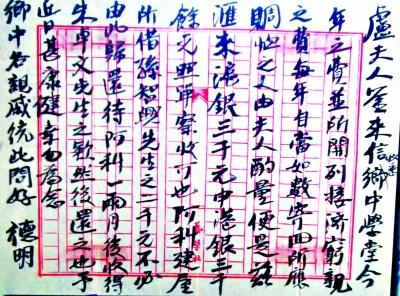 盧夫人鉴来信收悉鄉中學堂今
年之費並所開列接濟窮親
之費每年自當如數寄回所應
賙恤之人由夫人酌量便是兹
滙来滬銀三千元申港銀三千
餘元照單察收可也阿科建屋
所借孫智興先生之二千元不必
由此歸還待阿科一兩月後收得
朱卓文先生之款然後還之也予
近日甚康健幸勿為念
鄉中各親戚統此問好 德明